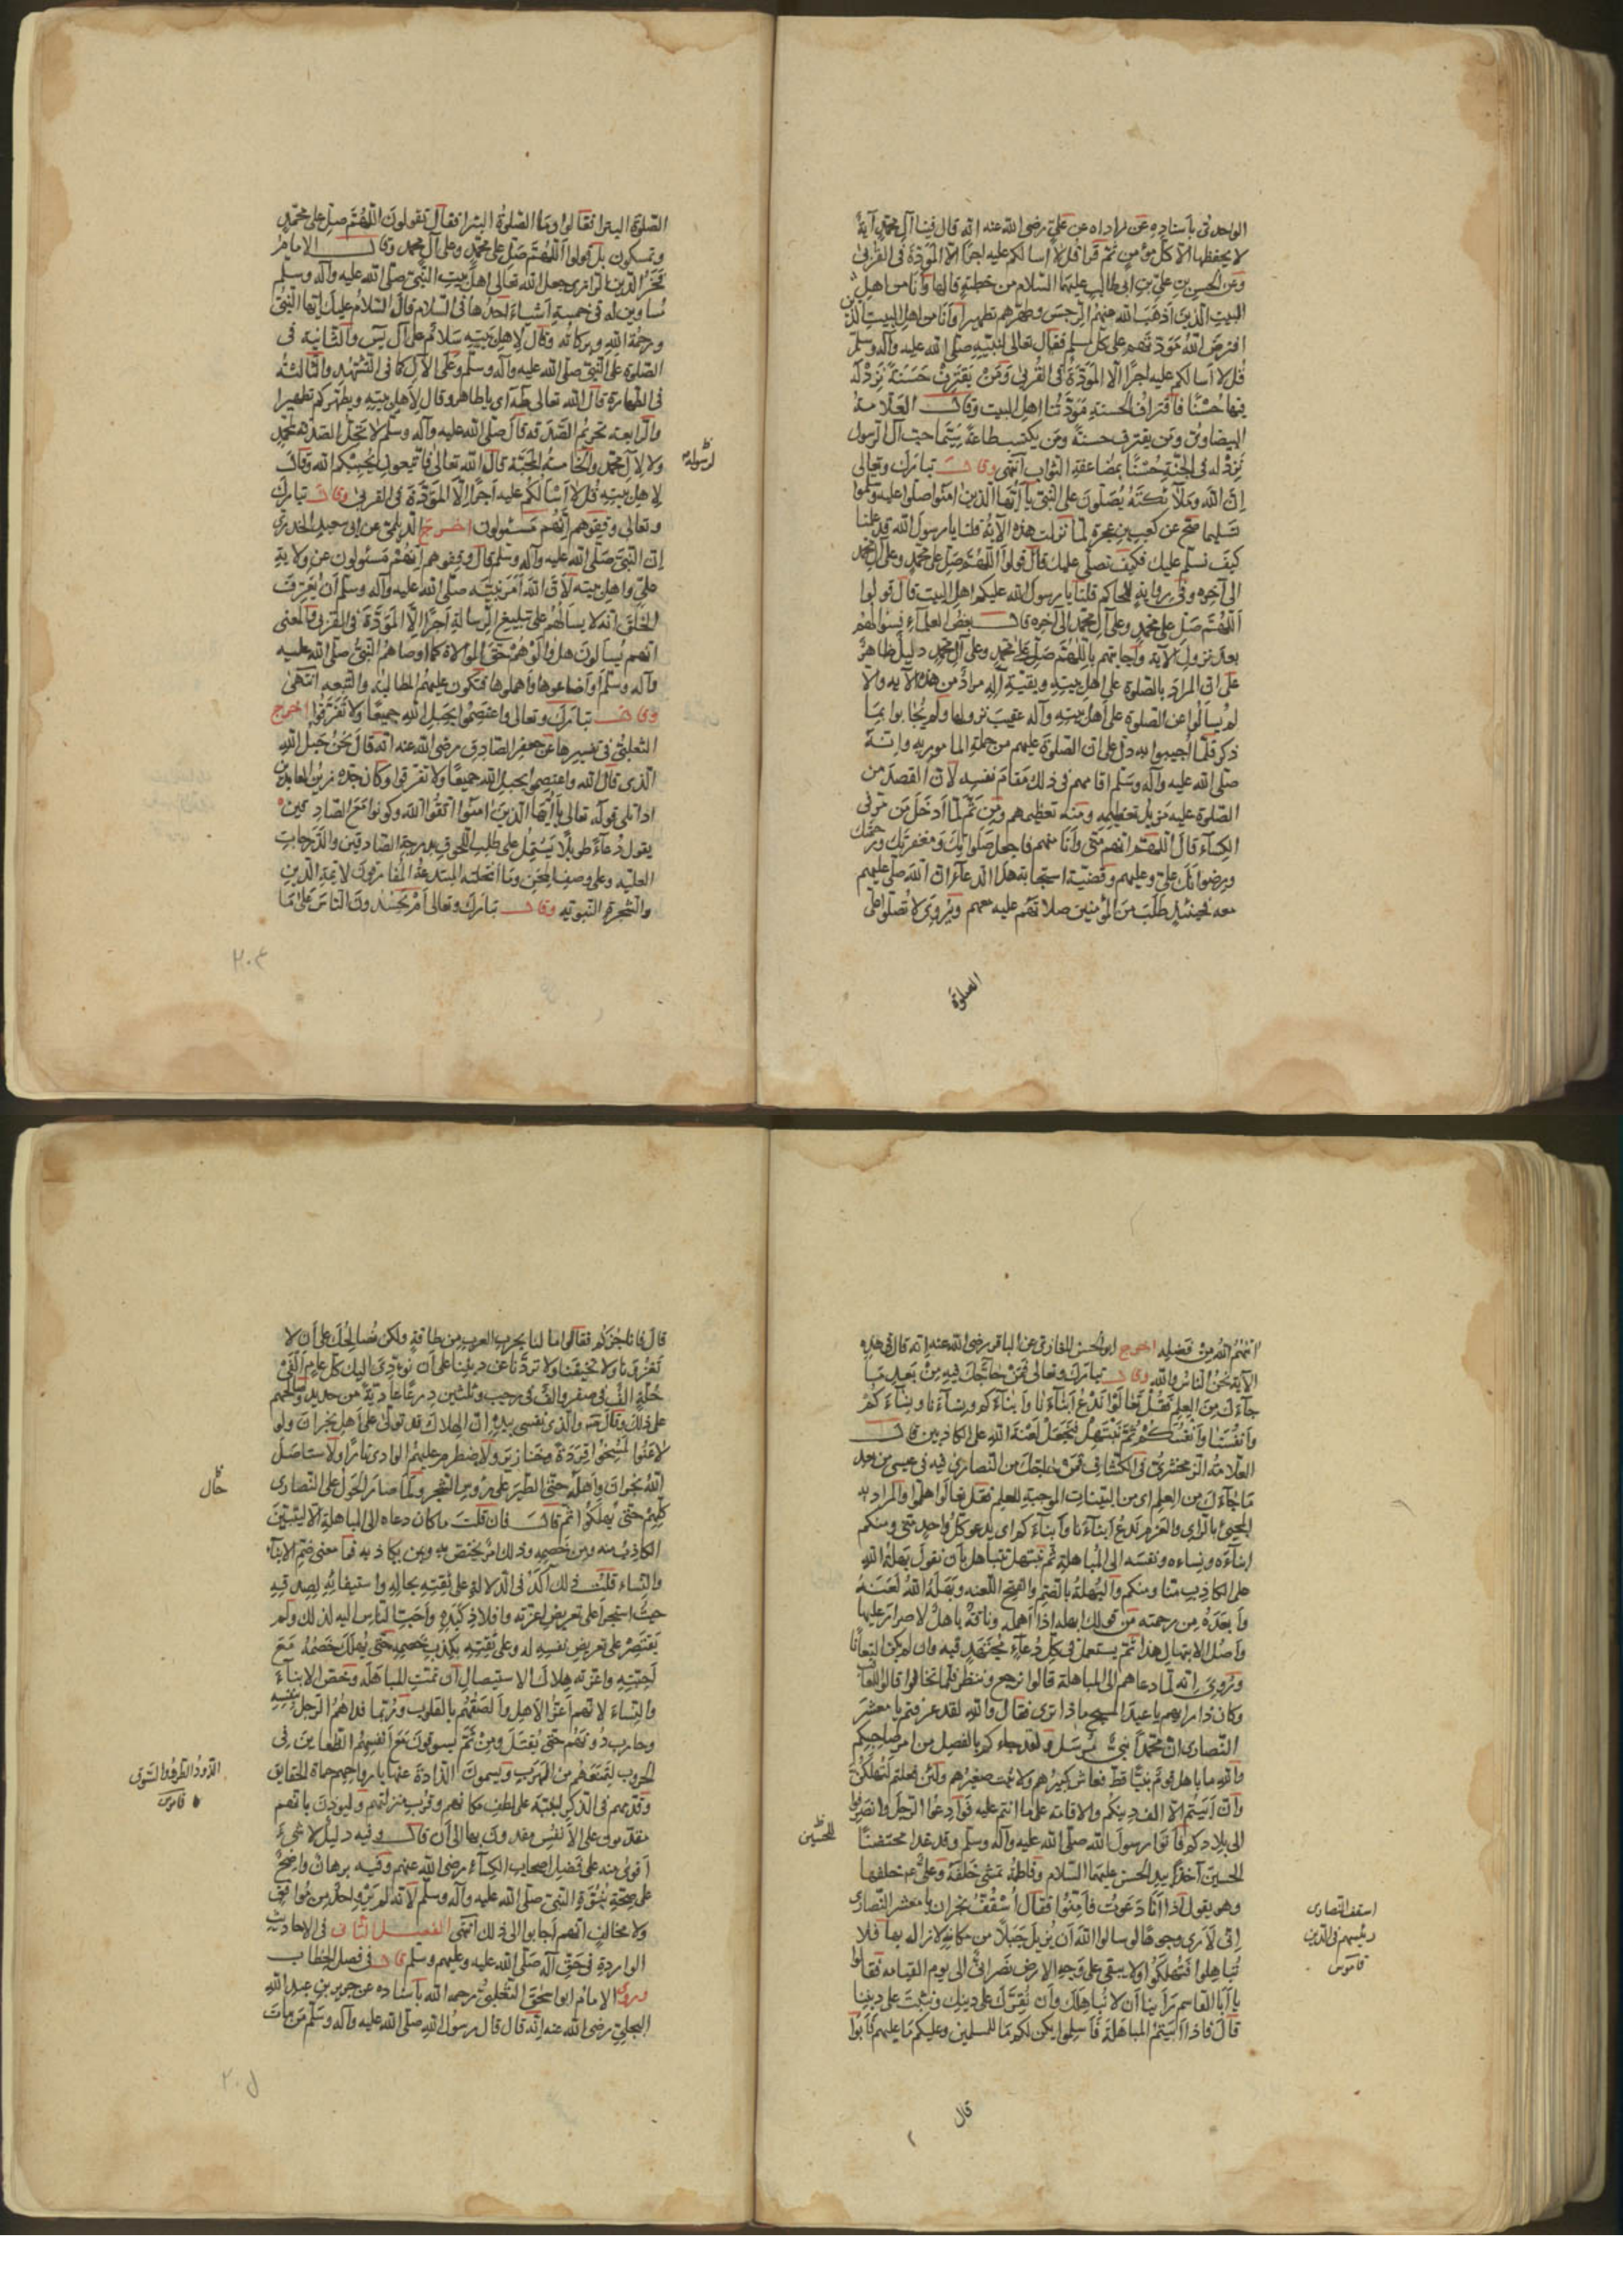 الواحدى باسناده عن زاداه عن علي رضى الله عنه انه قال فينا آل محمد آية
لا يحفظها الا كل مؤمن ثم قرا قل لا اسالكم عليه اجرا الا المودة فى القربى
وعن الحسن بن علي بن ابى طالب عليهما السلام من خطبة قالها وانا من اهل
البيت الذين اذهب الله عنهم الرجس وطهرهم تطهيرا وانا من اهل البيت الذين
افترض الله مودتهم على كل مسلم فقال تعالى لنبيه صلى الله عليه وآله وسلم
قل لا اسالكم عليه اجرا الا المودة فى القربى ومن يقترف حسنة نزد له
فيها حسنا فاقتراف الحسنة مودتنا اهل البيت وقال العلامة
البيضاوى ومن يقترف حسنة ومن يكتسب طاعة سيما حب آل الرسول
نزد له فى الجنة حسنا بمضاعفة الثواب انتهى وقال تبارك وتعالى
ان الله وملائكته يصلون على النبى يا ايها الذين امنوا صلوا عليه وسلموا
تسليما صح عن كعب بن عجرة لما نزلت هذه الآية قلنا يا رسول الله قد علمنا
كيف نسلم عليك فكيف نصلى عليك قال قولوا اللهم صل على محمد وعلى آل محمد
الى آخره وفى رواية للحاكم قلنا يا رسول الله عليكم اهل البيت قال قولوا
اللهم صل على محمد وعلى آل محمد الى آخره قال بعض العلماء فسؤالهم
بعد نزول الآية واجابتهم باللهم صل على محمد وعلى آل محمد دليل ظاهر
على ان المراد بالصلوة على اهل بيته وبقية آله مراد من هذه الآية والا
لم يسالوا عن الصلوة على اهل بيته وآله عقيب نزولها ولم يجابوا بما
ذكر فلما اجيبوا به دل على ان الصلوة عليهم من جملة المامور به وانه
صلى الله عليه وآله وسلم اقامهم فى ذلك مقام نفسه لان القصد من
الصلوة عليه مزيد تعظيمه ومنه تعظيمهم ومن ثم لما ادخل من مر فى
الكساء قال اللهم انهم منى وانا منهم فاجعل صلواتك ومغفرتك ورحمتك
ورضوانك علي وعليهم وقضية استجابة هذا الدعاء ان الله صلى عليهم
معه فحينئذ طلب من المؤمنين صلاتهم عليه معهم ويروى لا تصلوا على
الصلوة
الصلوة البترا فقالوا وما الصلوة البترا فقال تقولون اللهم صل على محمد
وتمسكون بل قولوا اللهم صل على محمد وعلى آل محمد وقال الامام
فخر الدين الرازى جعل الله تعالى اهل بيت النبى صلى الله عليه وآله وسلم
مساوين له فى خمسة اشياء احدها فى السلام قال السلام عليك ايها النبى
ورحمة الله وبركاته وقال لاهل بيته سلام على آل يس والثانية فى
الصلوة على النبى صلى الله عليه وآله وسلم وعلى الآل كما فى التشهد والثالثة
فى الطهارة قال الله تعالى طه اى يا طاهر وقال لاهل بيته ويطهركم تطهيرا
والرابعة تحريم الصدقة قال صلى الله عليه وآله وسلم لا تحل الصدقة لمحمد
ولا لآل محمد والخامسة المحبة قال الله تعالى فاتبعونى يحببكم الله وقال
لاهل بيته قل لا اسالكم عليه اجرا الا المودة فى القربى وقال تبارك
وتعالى وقفوهم انهم مسئولون اخرج الديلمى عن ابى سعيد الخدرى
ان النبى صلى الله عليه وآله وسلم قال وقفوهم انهم مسئولون عن ولاية
علي واهل بيته لان الله امر نبيه صلى الله عليه وآله وسلم ان يعرف
الخلق انه لا يسالهم على تبليغ الرسالة اجرا الا المودة فى القربى والمعنى
انهم يسالون هل والوهم حق الموالاة كما اوصاهم النبى صلى الله عليه
وآله وسلم او اضاعوها واهملوها فتكون عليهم المطالبة والتبعة انتهى
وقال تبارك وتعالى واعتصموا بحبل الله جميعا ولا تفرقوا اخرج
الثعلبى فى تفسيرها عن جعفر الصادق رضى الله عنه انه قال نحن حبل الله
الذى قال الله واعتصموا بحبل الله جميعا ولا تفرقوا وكان جده زين العابدين
اذا تلى قوله تعالى يا ايها الذين امنوا اتقوا الله وكونوا مع الصادقين
يقول دعاء طويلا يشتمل على طلب اللحوق بدرجة الصادقين والدرجات
العلية وعلى وصف المحن وما انتحلته المبتدعة المفارقون لائمة الدين
والشجرة النبوية وقال تبارك وتعالى ام يحسدون الناس على ما
٢٠٤
اتيهم الله من فضله اخرج ابو الحسن المغازلى عن الباقر رضى الله عنه انه قال فى هذه
الآية نحن الناس والله وقال تبارك وتعالى فمن حاجك فيه من بعد ما
جاءك من العلم فقل تعالوا ندع ابناءنا وابناءكم ونساءنا ونساءكم
وانفسنا وانفسكم ثم نبتهل فنجعل لعنة الله على الكاذبين قال
العلامة الزمخشرى فى الكشاف فمن حاجك من النصارى فيه فى عيسى من بعد
ما جاءك من العلم اى من البينات الموجبة للعلم فقل تعالوا هلموا والمراد به
المجئ بالراى والعزم ندع ابناءنا وابناءكم اى يدعو كل واحد منى ومنكم
ابناءه ونساءه ونفسه الى المباهلة ثم نبتهل نتباهل بان نقول بهلة الله
على الكاذب منا ومنكم والبهلة بالضم والفتح اللعنة وبهله الله لعنه
وابعده من رحمته من قولك ابهله اذا اهمله وناقة باهل لا صرار عليها
واصل الابتهال هذا ثم يستعمل فى كل دعاء مجتهد فيه وان لم يكن التعانا
وروى انه لما دعاهم الى المباهلة قالوا نرجع وننظر فلما تخالوا قالوا للعاقب
وكان ذا رايهم يا عبد المسيح ماذا ترى فقال والله لقد عرفتم يا معشر
النصارى ان محمدا نبى مرسل ولقد جاءكم بالفصل من امر صاحبكم
والله ما باهل قوم نبيا قط فعاش كبيرهم ولا نبت صغيرهم ولئن فعلتم لتهلكن
وان ابيتم الا الف دينكم والاقامة على ما انتم عليه فوادعوا الرجل وانصرفوا
الى بلادكم فاتوا رسول الله صلى الله عليه وآله وسلم وقد غدا محتضنا
الحسين آخذا بيد الحسن عليهما السلام وفاطمة تمشى خلفه وعلي خلفها
وهو يقول اذا انا دعوت فامنوا فقال اسقف نجران يا معشر النصارى
انى لارى وجوها لو سالوا الله ان يزيل جبلا من مكانه لازاله بها فلا
تباهلوا فتهلكوا ولا يبقى على وجه الارض نصرانى الى يوم القيامة فقالوا
يا ابا القاسم راينا ان لا نباهلك وان نقرك على دينك ونثبت على ديننا
قال فاذا ابيتم المباهلة فاسلموا يكن لكم ما للمسلمين وعليكم ما عليهم فابوا
اسقف النصارى
رئيسهم فى الدين
قاموس
قال
قال فانى اناجزكم فقالوا ما لنا بحرب العرب من طاقة ولكن نصالحك على ان لا
تغزونا ولا تخيفنا ولا تردنا عن ديننا على ان نؤدى اليك كل عام الفى
حلة الف فى صفر والف فى رجب وثلثين درعا عادية من حديد فصالحهم
على ذلك وقال والذى نفسى بيده ان الهلاك قد تدلى على اهل نجران ولو
لاعنوا لمسخوا قردة وخنازير ولاضطرم عليهم الوادى نارا ولاستاصل
الله نجران واهله حتى الطير على رؤوس الشجر ولما صار الحول على النصارى
كلهم حتى يهلكوا ثم قال فان قلت ما كان دعاه الى المباهلة الا ليتبين
الكاذب منه ومن خصمه وذلك امر يختص به وبمن يكاذبه فما معنى ضم الابناء
والنساء قلت ذلك آكد فى الدلالة على ثقته بحاله واستيقانه بصدقه
حيث استجرا على تعريض اعزته وافلاذ كبده واحب الناس اليه لذلك ولم
يقتصر على تعريض نفسه له وعلى ثقته بكذب خصمه حتى يهلك خصمه مع
احبته واعزته هلاك الاستيصال ان تمت المباهلة وخص الابناء
والنساء لانهم اعز الاهل والصقهم بالقلوب وربما فداهم الرجل بنفسه
وحارب دونهم حتى يقتل ومن ثم يسوقون مع انفسهم الظعاين فى
الحروب لتمنعهم من الهرب ويسمون الذادة عنها بارواحهم حماة الحقايق
وقدمهم فى الذكر لينبه على لطف مكانهم وقرب منزلتهم وليوذن بانهم
مقدمون على الانفس مفدون بها الى ان قال وفيه دليل لا شئ
اقوى منه على فضل اصحاب الكساء رضى الله عنهم وفيه برهان واضح
على صحة نبوة النبى صلى الله عليه وآله وسلم لانه لم يرو احد من موافق
ولا مخالف انهم اجابوا الى ذلك انتهى الفصل الثانى فى الاحاديث
الواردة فى حق آله صلى الله عليه وعليهم وسلم قال فى فصل الخطاب
وروى الامام ابو اسحق الثعلبى رحمه الله باسناده عن جرير بن عبد الله
البجلى رضى الله عنه انه قال قال رسول الله صلى الله عليه وآله وسلم من مات
حال
قاموس